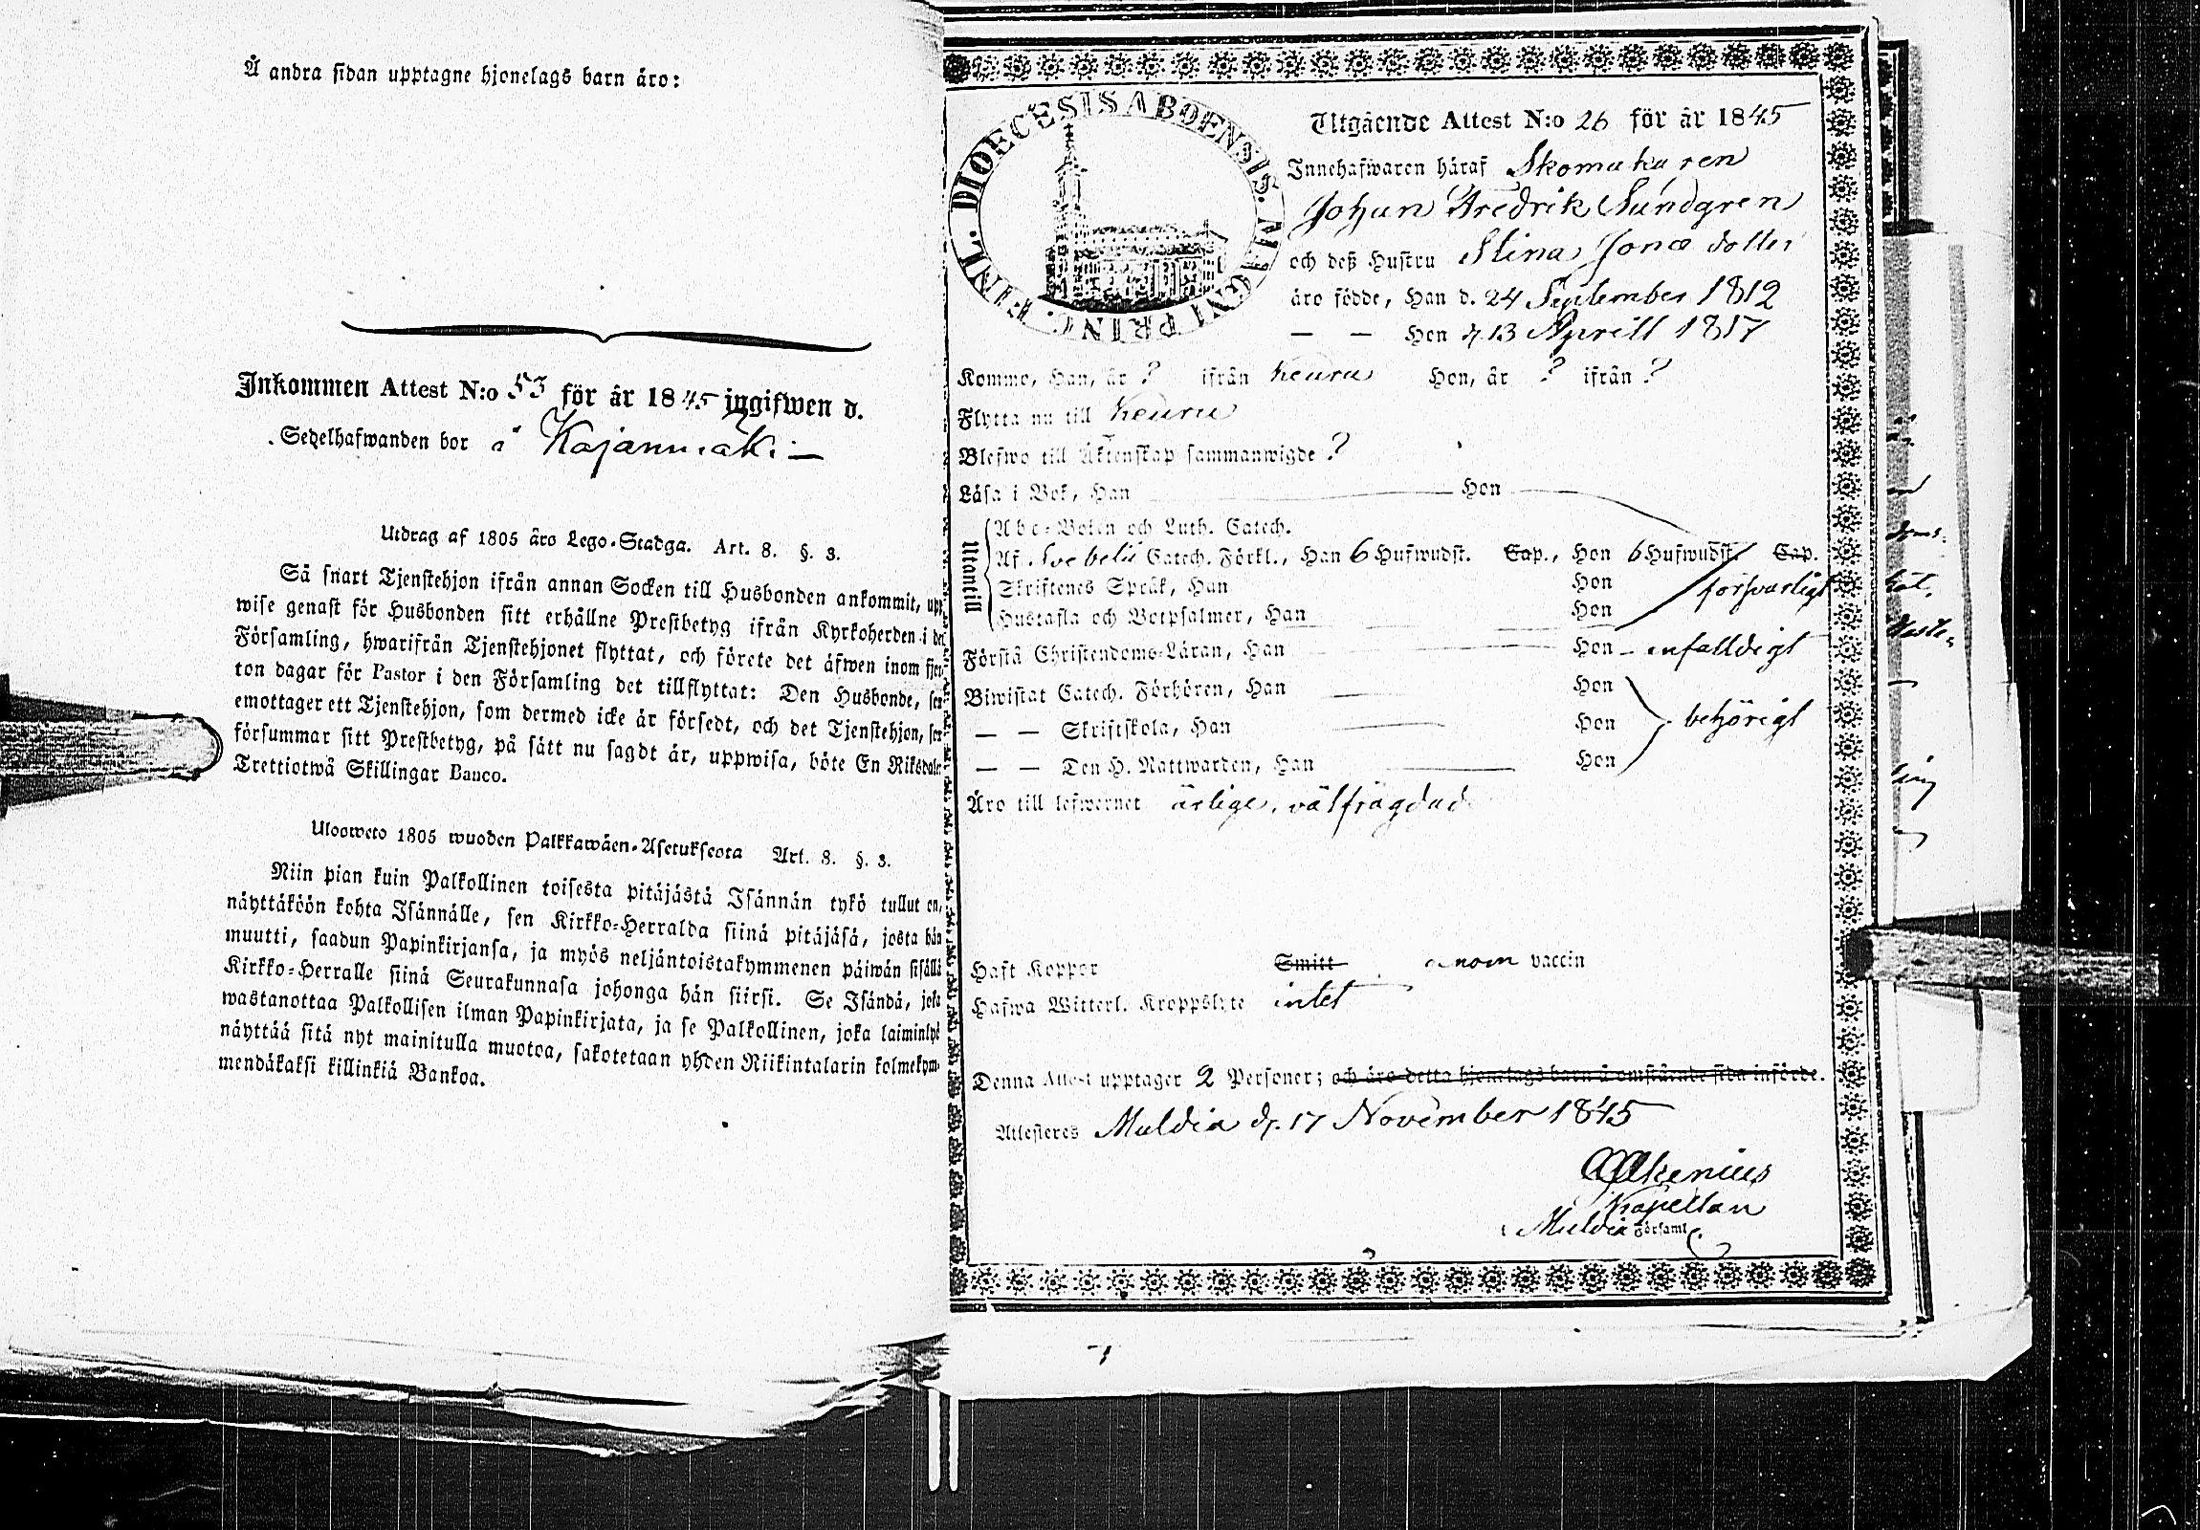 Å andra sidan upptagne hjonelags barn äro:
Inkommen Attest N:o 53 för år 1845 ingifwen d.
Sedelhafwanden bor å
Utdrag af 1805 års Lego-Stadga. Art. 8. §. 3.
Så snart Tjenstehjon ifrån annan Socken till Husbonden ankommit, upp
wise genast för Husbonden sitt erhållne Prestbetyg ifrån Kyrkoherden i den
Församling, hwarifrån Tjenstehjonet flyttat, och förete det äfwen inom fjor
ton dagar för Pastor i den Församling det tillflyttat: Den Husbonde, som
emottager ett Tjenstehjon, som dermed icke är försedt, och det Tjenstehjon, som
försummar sitt Prestbetyg, på sätt nu sagdt är, uppwisa, böte En Riksdaler
Trettiotwå Skillingar Banco.
Ulosweto 1805 wuoden Palkkawäen-Asetuksesta Art. 8. §. 3.
Niin pian kuin Palkollinen toisesta pitäjästä Isännän tykö tullut on,
näyttäköön kohta Isännälle, sen Kirkko-Herralda siinä pitäjäsä, josta hän
muutti, saadun Papinkirjansa, ja myös neljäntoistakymmenen päiwän sisällä
Kirkko-Herralle siinä Seurakunnasa johonga hän siirsi. Se Isändä, joka
wastanottaa Palkollisen ilman Papinkirjata, ja se Palkollinen, joka laiminlyö
näyttää sitä nyt mainitulla muotoa, sakotetaan yhden Riikintalarin kolmekym-
mendäkaksi killinkiä Bankoa.
DIOECESIS ABOENSIS. MAGNI PRINC. FINL.
Utgående Attest N:o 26 för år 1845
Innehafwaren häraf Skomakaren
Johan Fredrik Sundgren
och deß Hustru Stina Jonæ dotter
äro födde, Han d. 24 September 1812
— — Hon d. 13 Aprill 1817
Komne, Han, år ? ifrån Keuru Hon, år ? ifrån ?
Flytta nu till Keuru
Blefwo till Äktenskap sammanwigde ?
Läsa i Bok, Han Hon
Utantill
Abc-Boken och Luth. Catech.
Af Svebelii Catech. Förkl., Han 6 Hufwudst. Cap., Hon 6 Hufwudst. Cap.
Skriftenes Språk, Han Hon försvarligt
Hustafla och Botpsalmer, Han Hon
Förstå Christendoms-Läran, Han Hon enfalldigt
Biwistat Catech. Förhören, Han Hon
— — Skriftskola, Han Hon behörigt
— — Den H. Nattwarden, Han Hon
Äro till lefwernet ärlige, välfrägdade
Haft Koppor Smitt genom vaccin
Hafwa Witterl. Kroppslyte intet
Denna Attest upptager 2 Personer; och äro detta hjonelags barn å omstående sida införde.
Attesteras Muldia d. 17 November 1845
Kapellan
i Muldia Församl.